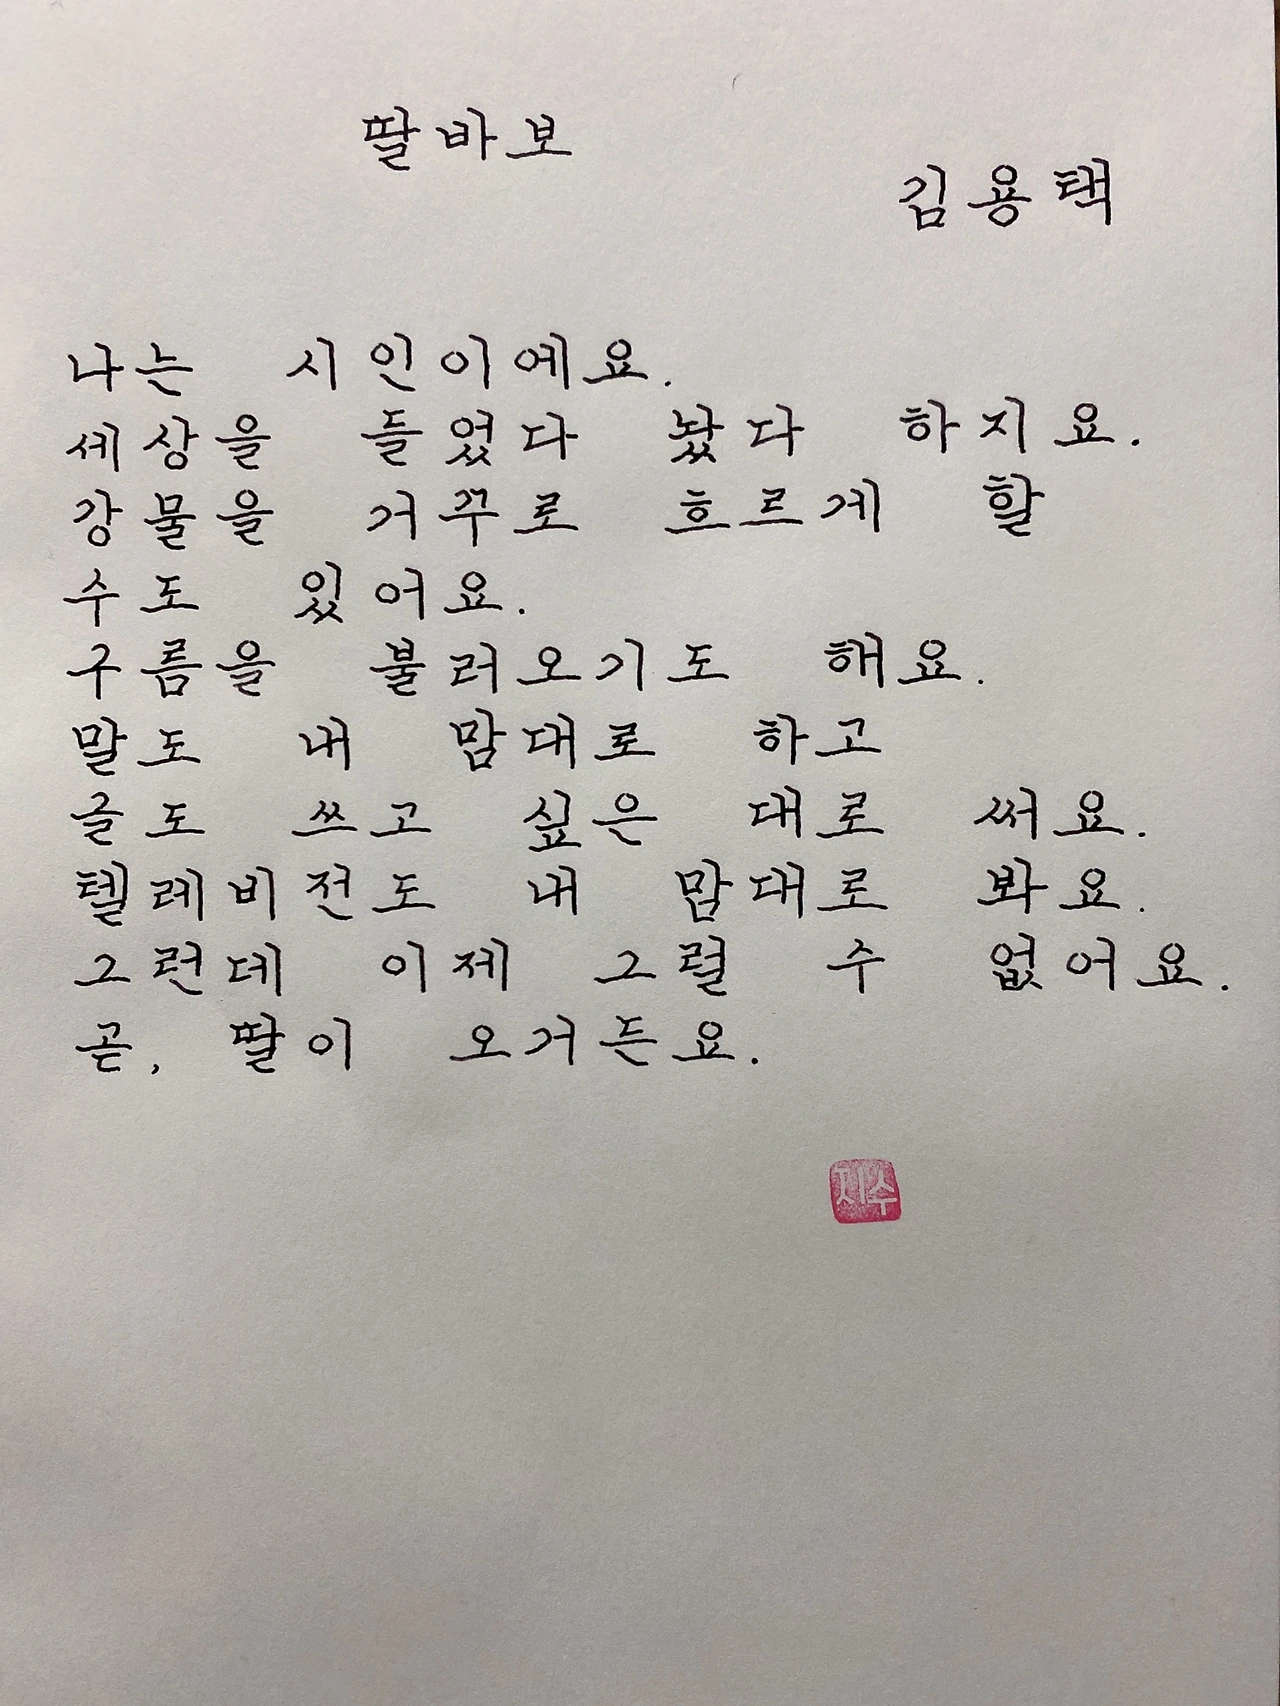 딸바보
김용택
나는 시인이예요.
세상을 들었다 놨다 하지요.
강물을 거꾸로 흐르게 할
수도 있어요.
구름을 불러오기도 해요.
말도 내 맘대로 하고
글도 쓰고 싶은 대로 써요.
텔레비전도 내 맘대로 봐요.
그런데 이제 그럴 수 없어요.
곧, 딸이 오거든요.
지수